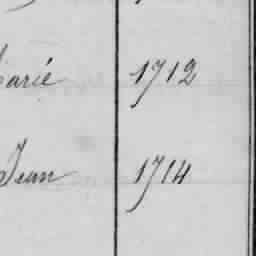 Marié 1712
Jean 1714